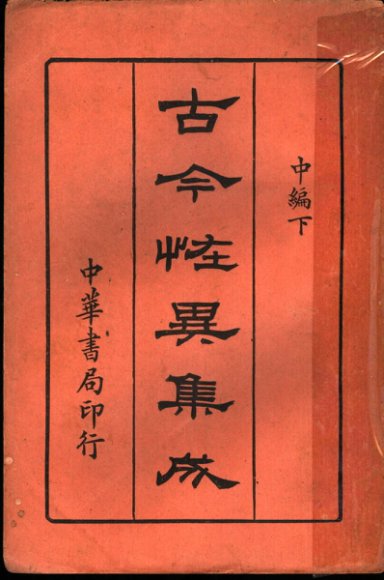 中編下
古今恠異集成
中華書局印行